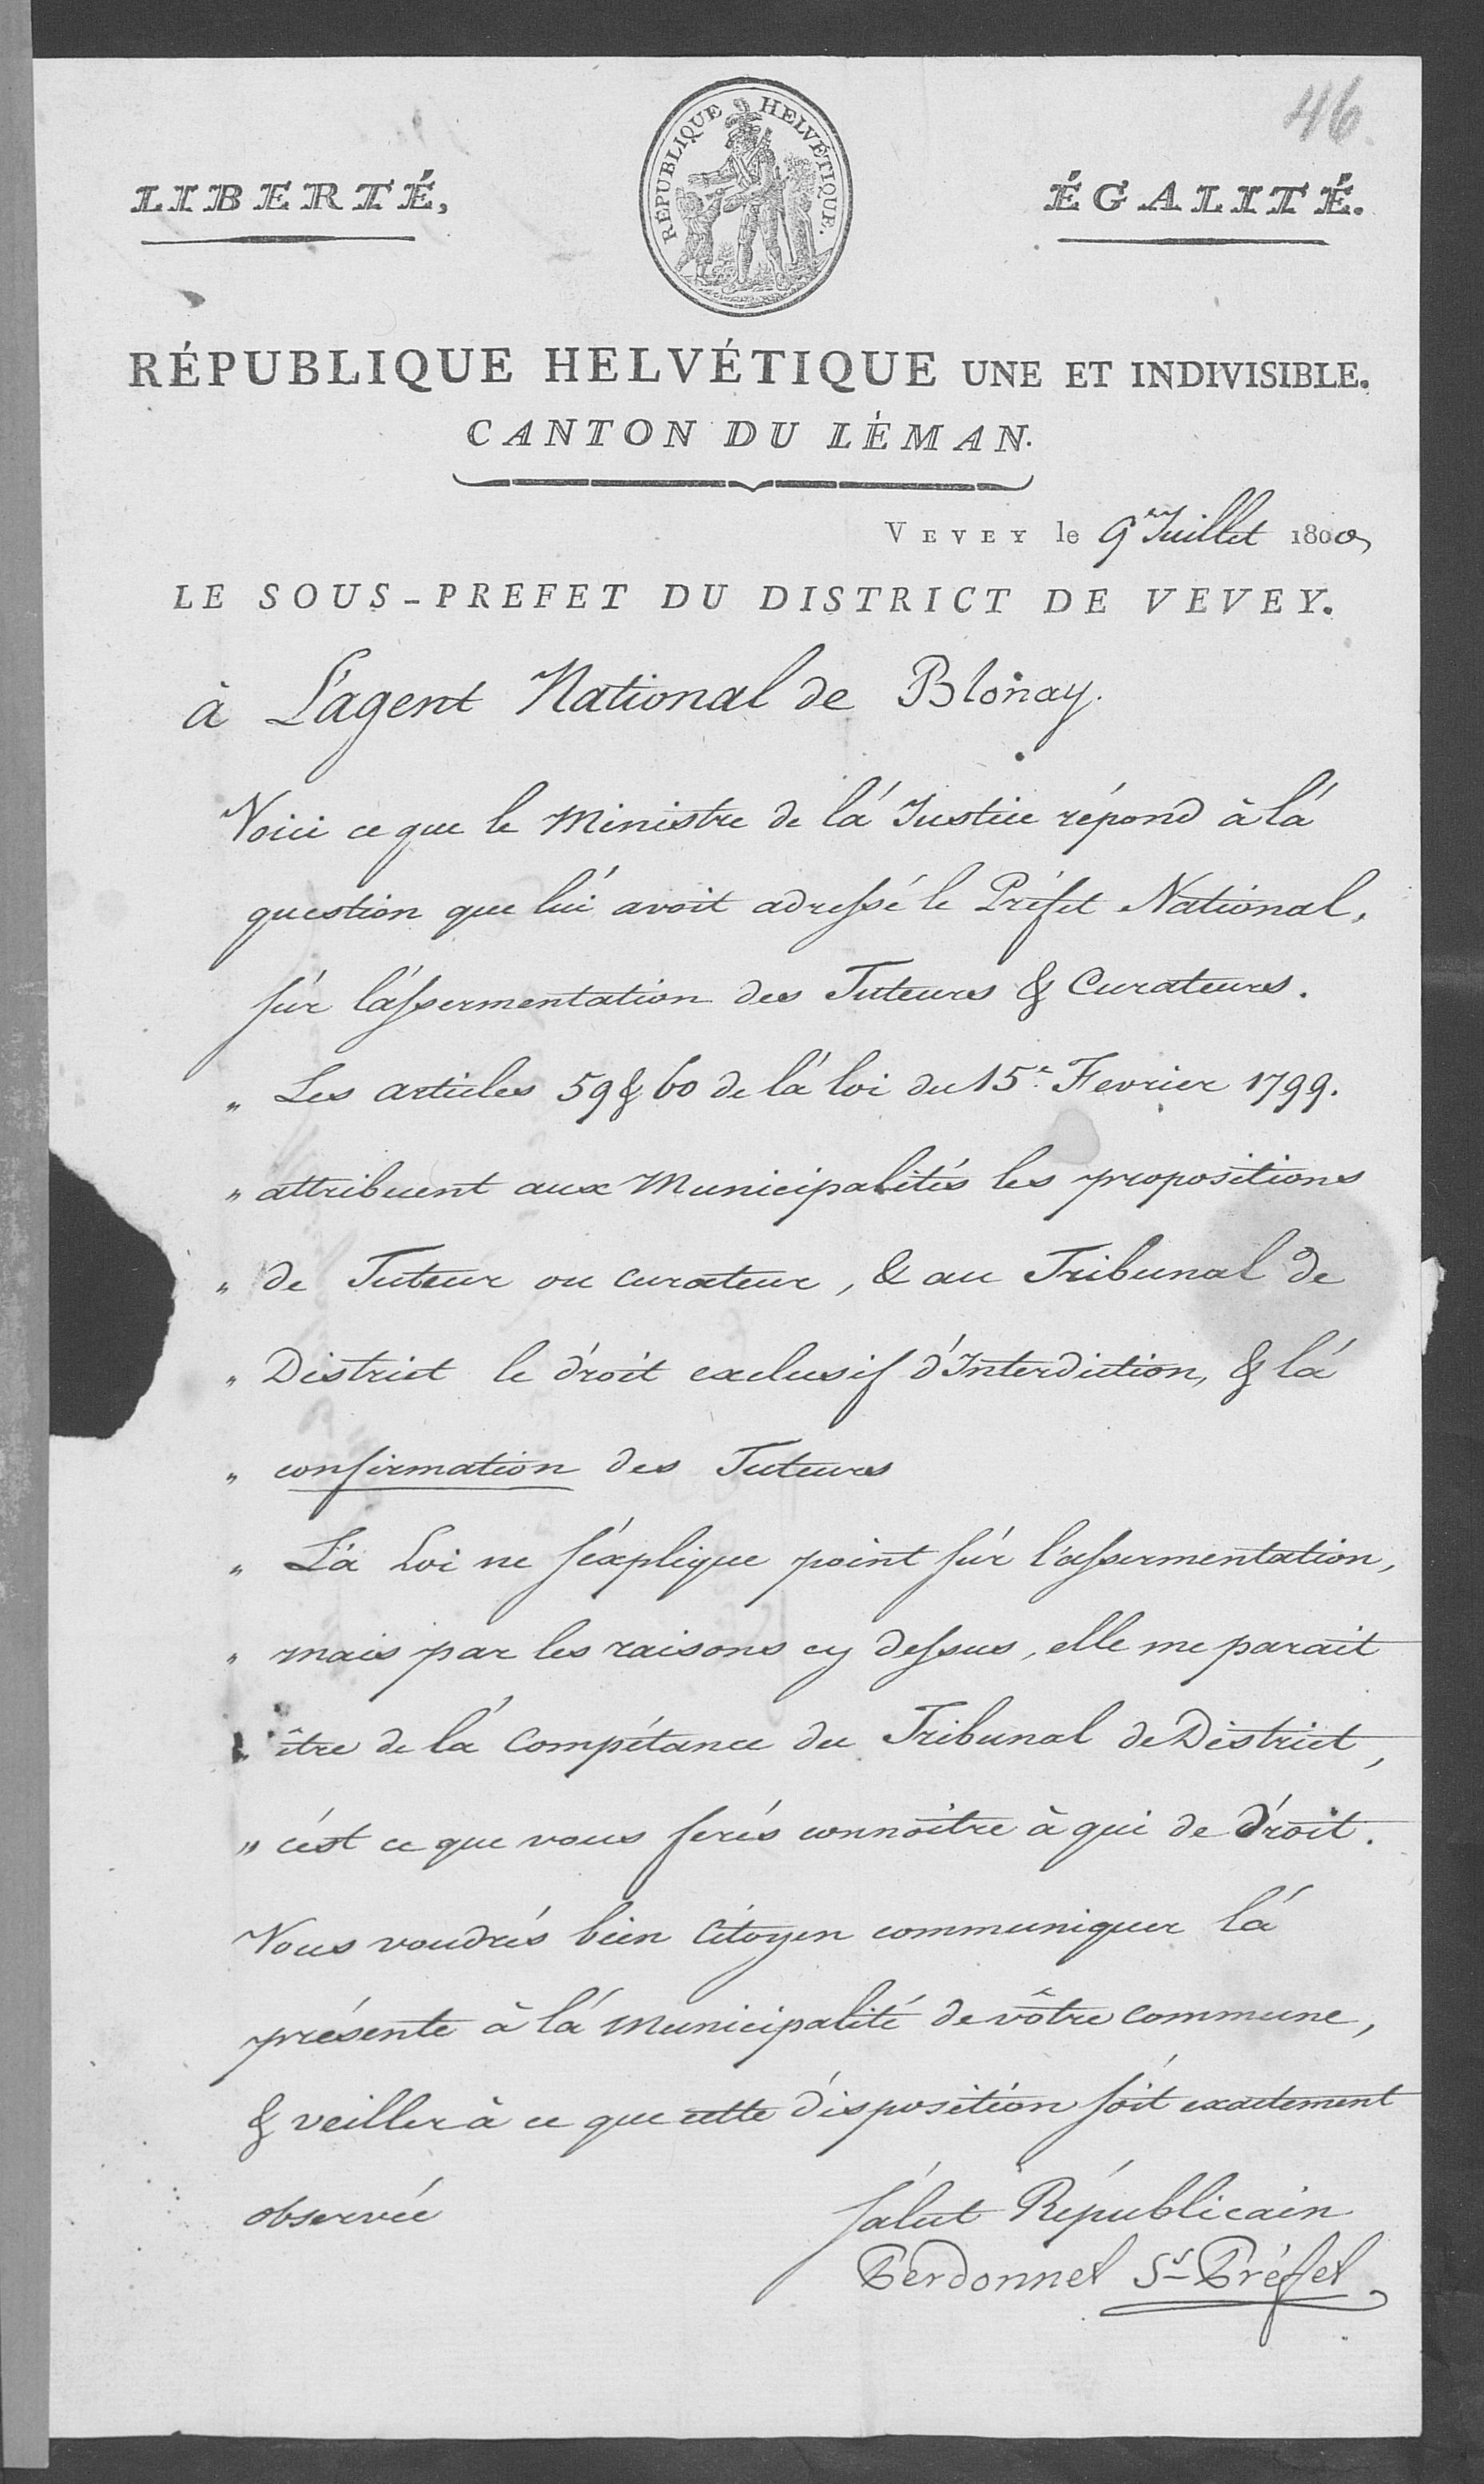 46
RÉPUBLIQUE HELVÉTIQUE.
LIBERTÉ,
ÉGALITÉ.
RÉPUBLIQUE HELVÉTIQUE UNE ET INDIVISIBLE.
CANTON DU LÉMAN.
VEVEY le 9e Juillet 1800
LE SOUS-PREFET DU DISTRICT DE VEVEY.
à L'agent National de Blonay.
Voici ce que le Ministre de lá Justice répond à lá
question que lui avoit adressé le Préfet National,
sur l'assermentation des Tuteurs & Curateurs.
" Les articles 59 & 60 de lá loi du 15e Fevrier 1799.
" attribuent aux Municipalités les propositions
" de Tuteur ou curateur, & au Tribunal de
" District le droit exclusif d'Interdiction, & lá
" confirmation des Tuteurs
" Lá Loi ne s'explique point sur l'assermentation,
" mais par les raisons cy dessus, elle me parait
" être de lá Compétance du Tribunal de District,
" c'est ce que vous ferés connoitre à qui de droit.
Vous voudrés bien Citoyen communiquer lá
présente à lá Municipalité de vôtre Commune,
& veiller à ce que cette disposition soit exactement
observée
Salut Républicain
Perdonnet Ss Préfet